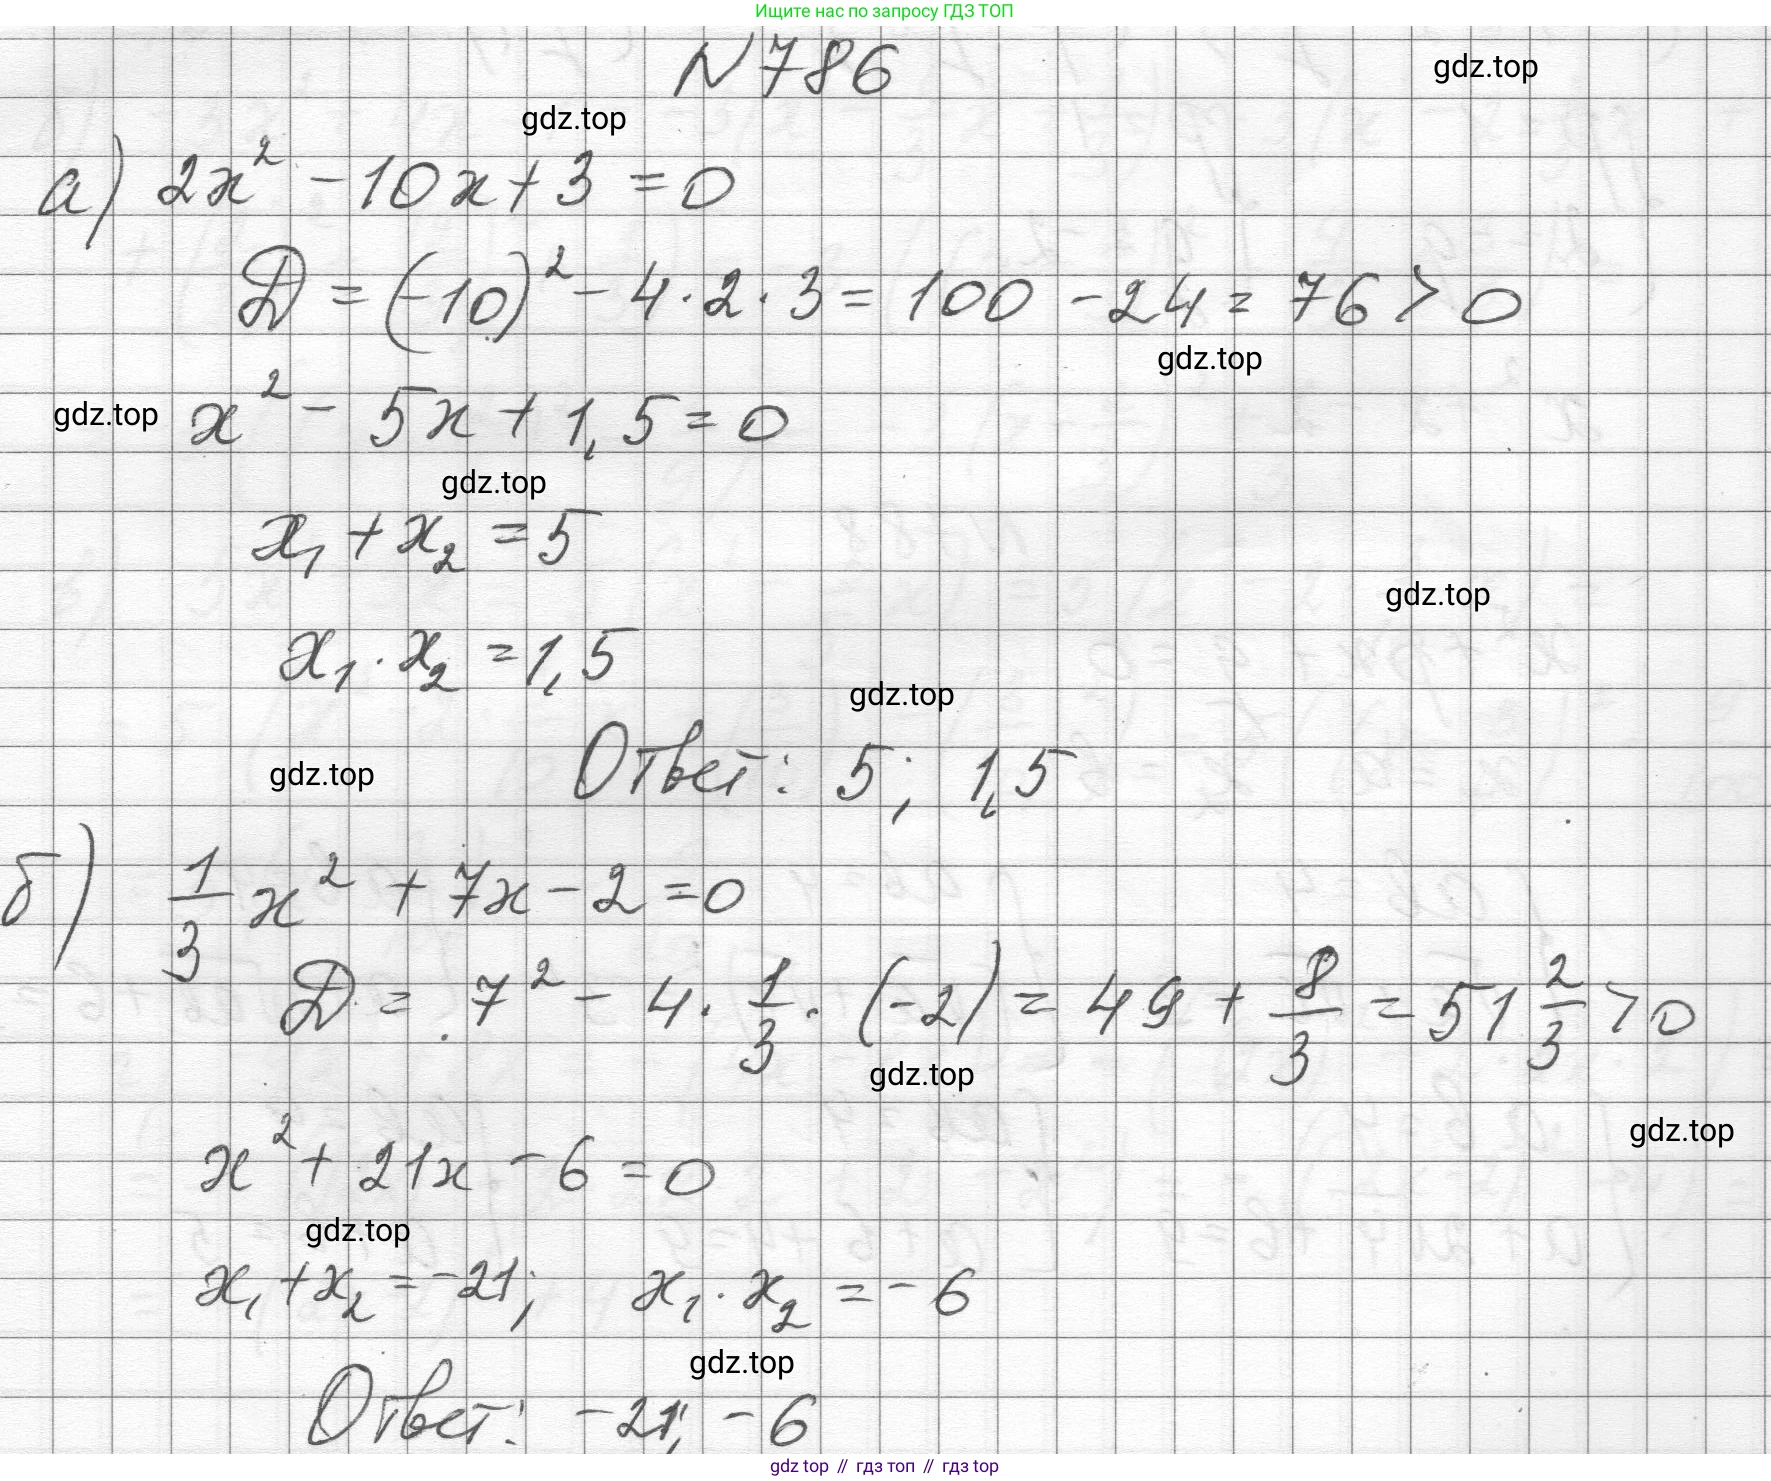 Ищите нас по запросу ГДЗ ТОП
N 786
gdz.top
gdz.top
а) 2x² - 10x + 3 = 0
D = (-10)² - 4 · 2 · 3 = 100 - 24 = 76 > 0
gdz.top
gdz.top
x² - 5x + 1,5 = 0
gdz.top
x₁ + x₂ = 5
gdz.top
x₁ · x₂ = 1,5
gdz.top
gdz.top
Ответ: 5; 1,5
б) 1/3 x² + 7x - 2 = 0
D = 7² - 4 · 1/3 · (-2) = 49 + 8/3 = 51 2/3 > 0
gdz.top
gdz.top
x² + 21x - 6 = 0
gdz.top
x₁ + x₂ = -21; x₁ · x₂ = -6
gdz.top
Ответ: -21; -6
gdz top // гдз топ // гдз top